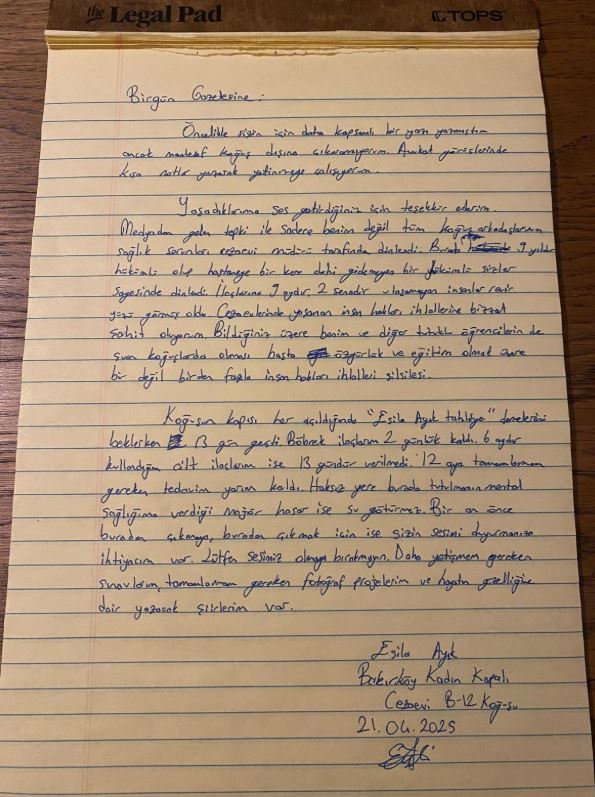 the Legal Pad TOPS
Birgün Gazetesine :
Öncelikle sizin için daha kapsamlı bir yazı yazmıştım
ancak maalesef koğuş dışına çıkaramıyorum. Avukat görüşlerinde
kısa notlar yazarak yetinmeye çalışıyorum.
Yaşadıklarıma ses getirdiğiniz için teşekkür ederim.
Medyadan gelen tepki ile sadece benim değil tüm koğuş arkadaşlarımın
sağlık sorunları cezaevi müdürü tarafında dinlendi. Burada 9 yıldır
hükümlü olup hastaneye bir kere dahi gidemeyen bir hükümlü sizler
sayesinde dinlendi. İlaçlarına 9 aydır, 2 senedir ulaşamayan insanlar revir
yüzü görmüş oldu. Cezaevlerinde yaşanan insan hakları ihlallerine bizzat
şahit oluyorum. Bildiğiniz üzere benim ve diğer tutuklu öğrencilerin de
şuan koğuşlarda olması başta özgürlük ve eğitim olmak üzere
bir değil birden fazla insan hakları ihlalleri silsilesi.
Koğuşun kapısı her açıldığında "Esila Ayık tahliye" demelerini
beklerken 13 gün geçti. Böbrek ilaçlarım 2 günlük kaldı. 6 aydır
kullandığım cilt ilaçlarım ise 13 gündür verilmedi. 12 aya tamamlamam
gereken tedavim yarım kaldı. Haksız yere burada tutulmanın mental
sağlığıma verdiği majör hasar ise su götürmez. Bir an önce
buradan çıkmaya, buradan çıkmak için ise sizin sesimi duyurmanıza
ihtiyacım var. Lütfen sesimiz olmayı bırakmayın. Daha yetişmem gereken
sınavlarım, tamamlamam gereken fotoğraf projelerim ve hayatın güzelliğine
dair yazacak şiirlerim var.
Esila Ayık
Bakırköy Kadın Kapalı
Cezaevi B-12 Koğuşu
21.04.2025